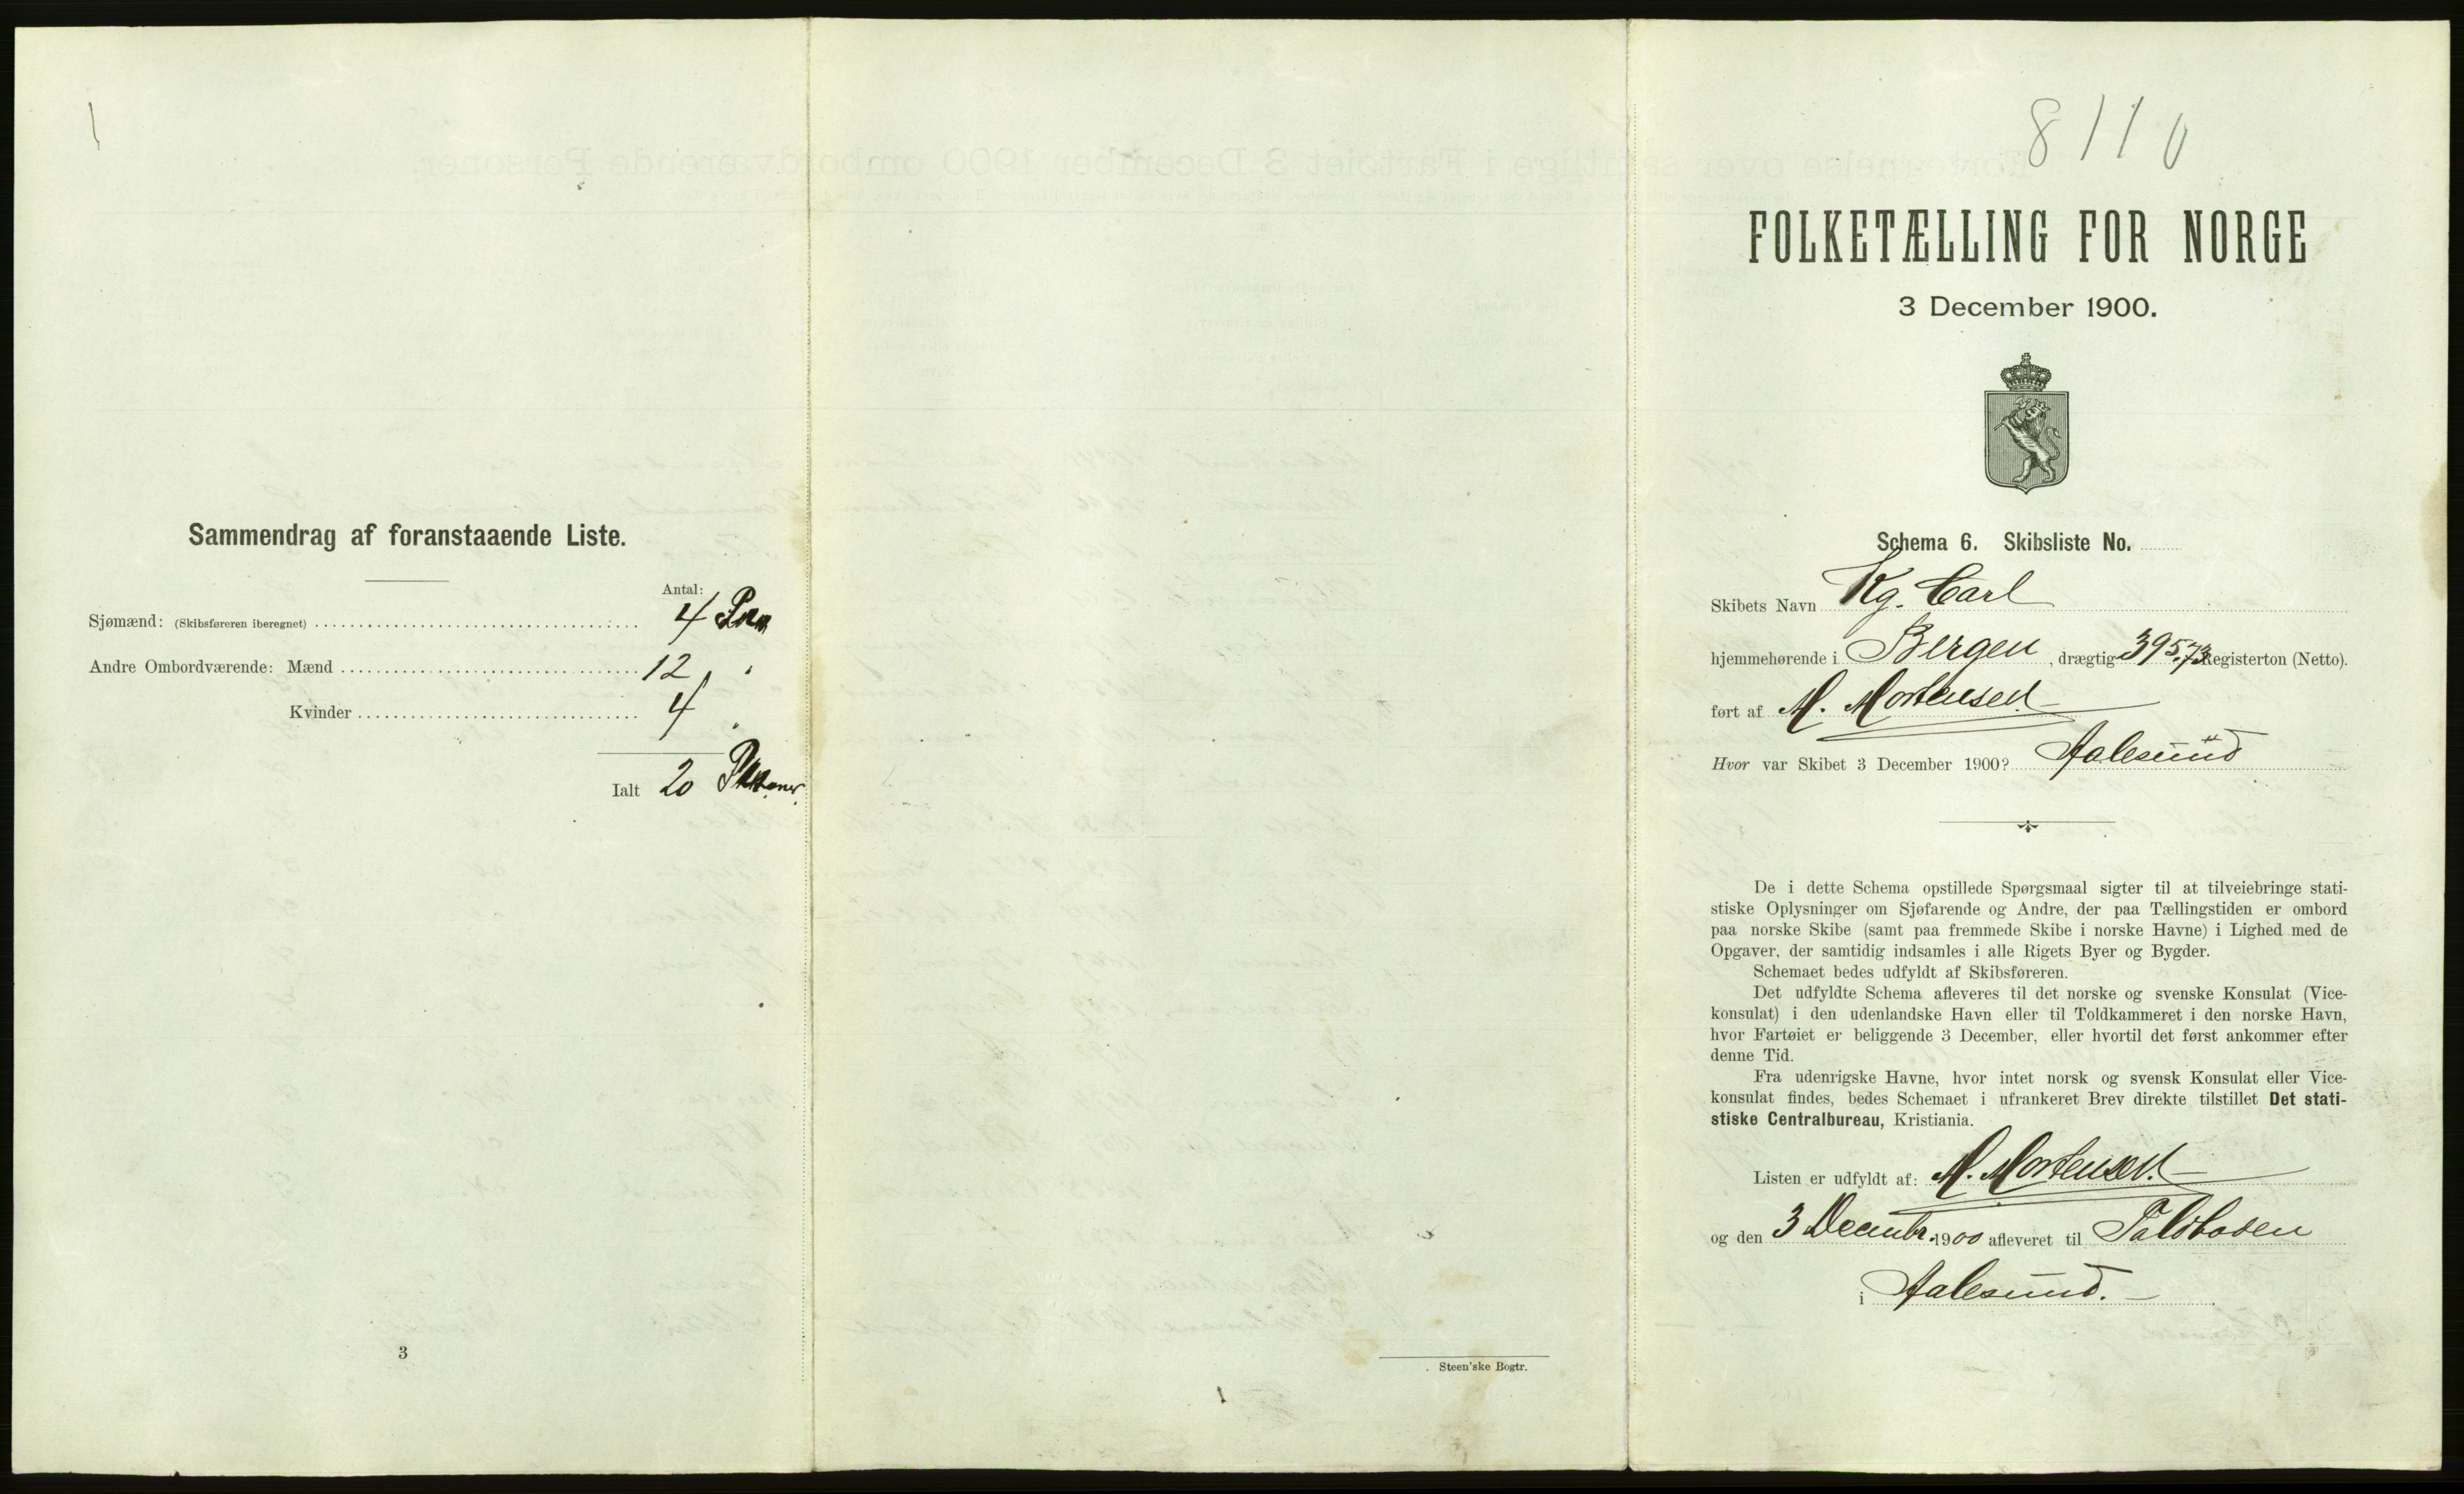 Sammendrag af foranstaaende Liste.
Antal:
Sjømænd: (Skibsføreren iberegnet) 4
Andre Ombordværende: Mænd 12 "
Kvinder 4 "
Ialt 20
3
Steen'ske Bogtr.
8110
FOLKETÆLLING FOR NORGE
3 December 1900.
Schema 6. Skibsliste No.
Skibets Navn Kg. Carl
hjemmehørende i Bergen, drægtig 395,73 Registerton (Netto).
ført af M. Mortensen
Hvor var Skibet 3 December 1900? Aalesund
De i dette Schema opstillede Spørgsmaal sigter til at tilveiebringe stati-
stiske Oplysninger om Sjøfarende og Andre, der paa Tællingstiden er ombord
paa norske Skibe (samt paa fremmede Skibe i norske Havne) i Lighed med de
Opgaver, der samtidig indsamles i alle Rigets Byer og Bygder.
Schemaet bedes udfyldt af Skibsføreren.
Det udfyldte Schema afleveres til det norske og svenske Konsulat (Vice-
konsulat) i den udenlandske Havn eller til Toldkammeret i den norske Havn,
hvor Fartøiet er beliggende 3 December, eller hvortil det først ankommer efter
denne Tid.
Fra udenrigske Havne, hvor intet norsk og svensk Konsulat eller Vice-
konsulat findes, bedes Schemaet i ufrankeret Brev direkte tilstillet Det stati-
stiske Centralbureau, Kristiania.
Listen er udfyldt af: M. Mortensen.
og den 3 Decembr. 1900 afleveret til Toldboden
i Aalesund.